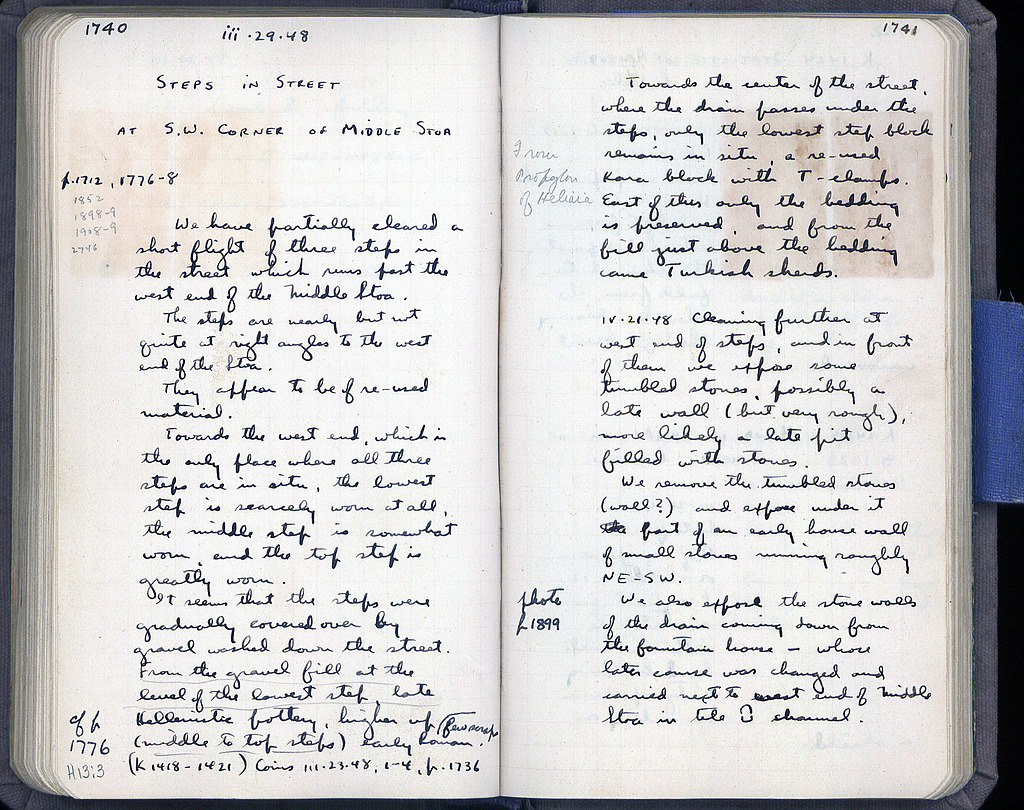 1740
iii.29.48
STEPS IN STREET
AT S.W. CORNER OF MIDDLE STOA
p.1712, 1776-8
1852
1898-9
1908-9
2746
We have partially cleared a
short flight of three steps in
the street which runs past the
west end of the Middle Stoa.
The steps are nearly but not
quite at right angles to the west
end of the Stoa.
They appear to be of re-used
material.
Towards the west end, which is
the only place where all three
steps are in situ, the lowest
step is scarcely worn at all,
the middle step is somewhat
worn, and the top step is
greatly worn.
It seems that the steps were
gradually covered over by
gravel washed down the street.
From the gravel fill at the
level of the lowest step, late
Hellenistic pottery, higher up (few scraps
(middle to top steps) early Roman.
cf p
1776
H13:3
(K 1418-1421) Coins III.23.48, 1-4, p.1736
1741
Towards the center of the street,
where the drain passes under the
steps, only the lowest step block
remains in situ, a re-used
Kara block with T-clamps.
East of this only the bedding
is preserved, and from the
fill just above the bedding
came Turkish sherds.
From
Propylon
of Heliaia
IV.21.48 Cleaning further at
west end of steps, and in front
of them we expose some
tumbled stones, possibly a
late wall (but very rough),
more likely a late pit
filled with stones.
We remove the tumbled stones
(wall?) and expose under it
part of an early house wall
of small stones running roughly
NE-SW.
photo
p.1899
We also expose the stone walls
of the drain coming down from
the fountain house – whose
later course was changed and
carried next to west end of Middle
Stoa in tile channel.